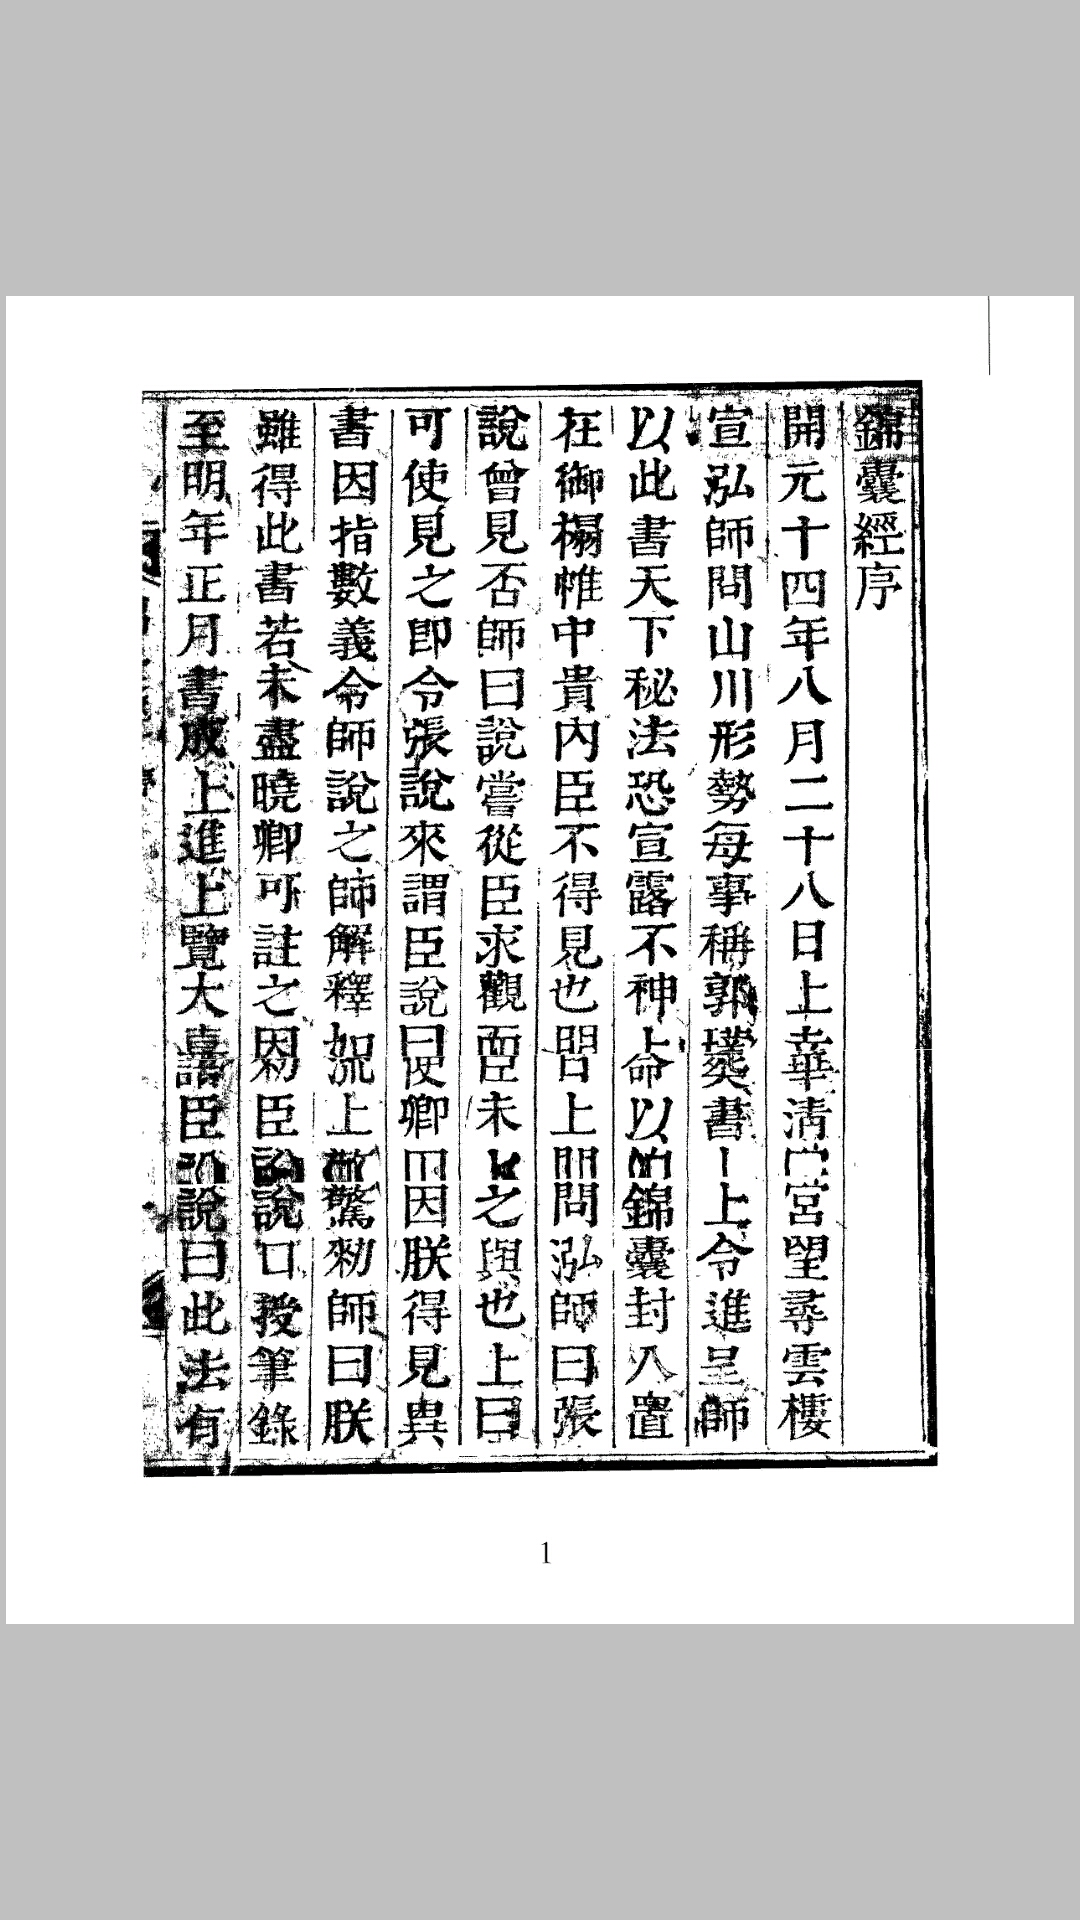 錦囊經序
開元十四年八月二十八日上幸華清宮望尋雲樓
宣泓師問山川形勢每事稱郭璞葬書上令進呈師
以此書天下秘法恐宣露不神上命以錦囊封入置
在御榻帷中貴內臣不得見也上問泓師曰張
說曾見否師曰說嘗從臣求觀而臣未之與也上曰
可使見之即令張說來謂臣說曰使卿因朕得見異
書因指數義令師說之師解釋如流上驚勑師曰朕
雖得此書若未盡曉卿可註之因勑臣說口授筆錄
至明年正月書成上進上覽大嘉詔臣說曰此法有
1